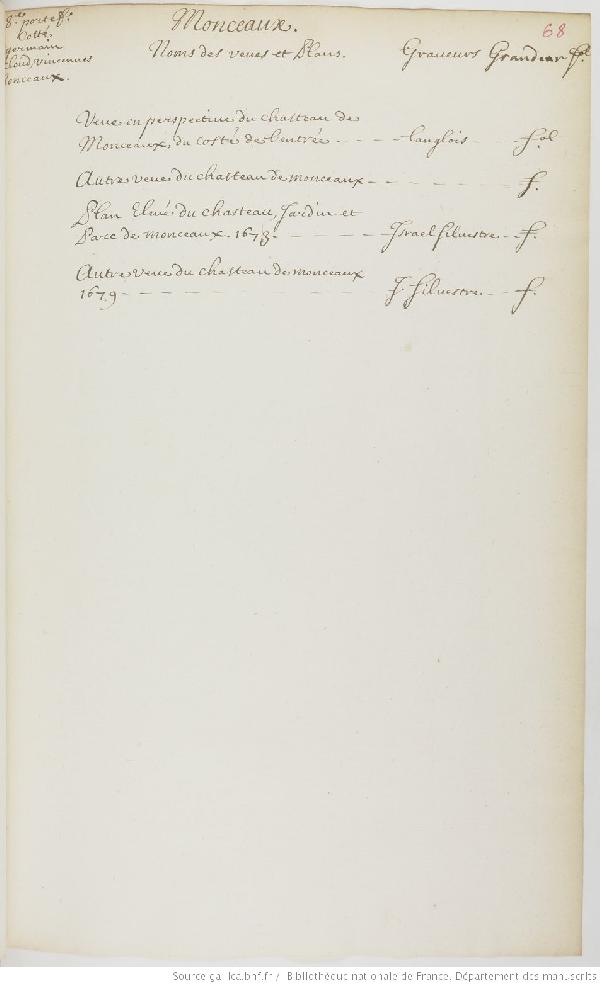 8.e portef.
Cotté
germain
cloud, vincennes
Monceaux.
Monceaux.
68
Noms des veues et Plans.
Graveurs
Grandeur
Veue en perspective du chasteau de
Monceaux, du costé de l'entrée - - - - Langlois - - - fol
Autre veue du chasteau de monceaux - - - - - - - f.
Plan Elevé du chasteau, Jardin et
Parc de monceaux. 1673. - - - - - Israel silvestre. - - f.
Autre veue du chasteau de monceaux
1679 - - - - - - - - J. silvestre. - - f.
Source gallica.bnf.fr / Bibliothèque nationale de France, Département des manuscrits